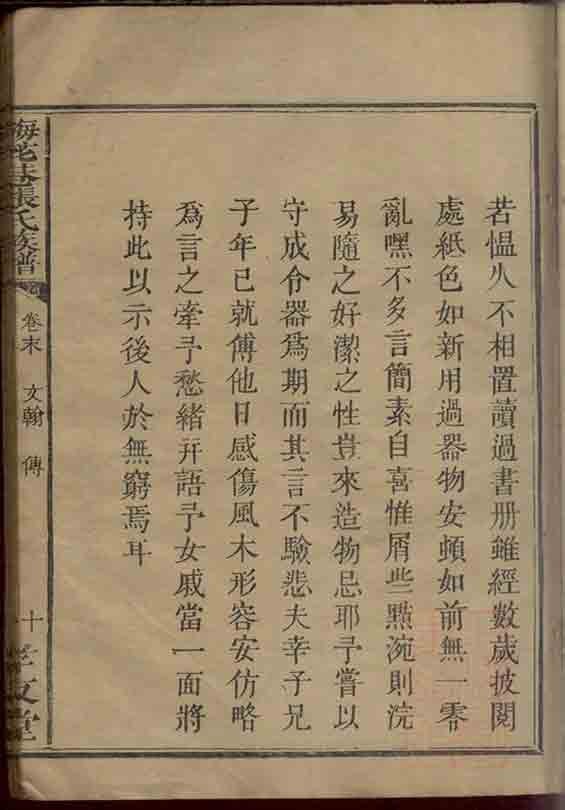 若愠久不相置讀過書册雖經數歲披閱
處紙色如新用過器物安頓如前無一零
亂嘿不多言簡素自喜惟屑些㸃涴則浣
易隨之好潔之性豈來造物忌耶予嘗以
守成令器爲期而其言不驗悲夫幸子兄
子年已就傅他日感傷風木形容安仿略
爲言之牽予愁緒幷語予女戚當一面將
持此以示後人於無窮焉耳
張氏族譜
卷末 文翰 傳
十
文堂